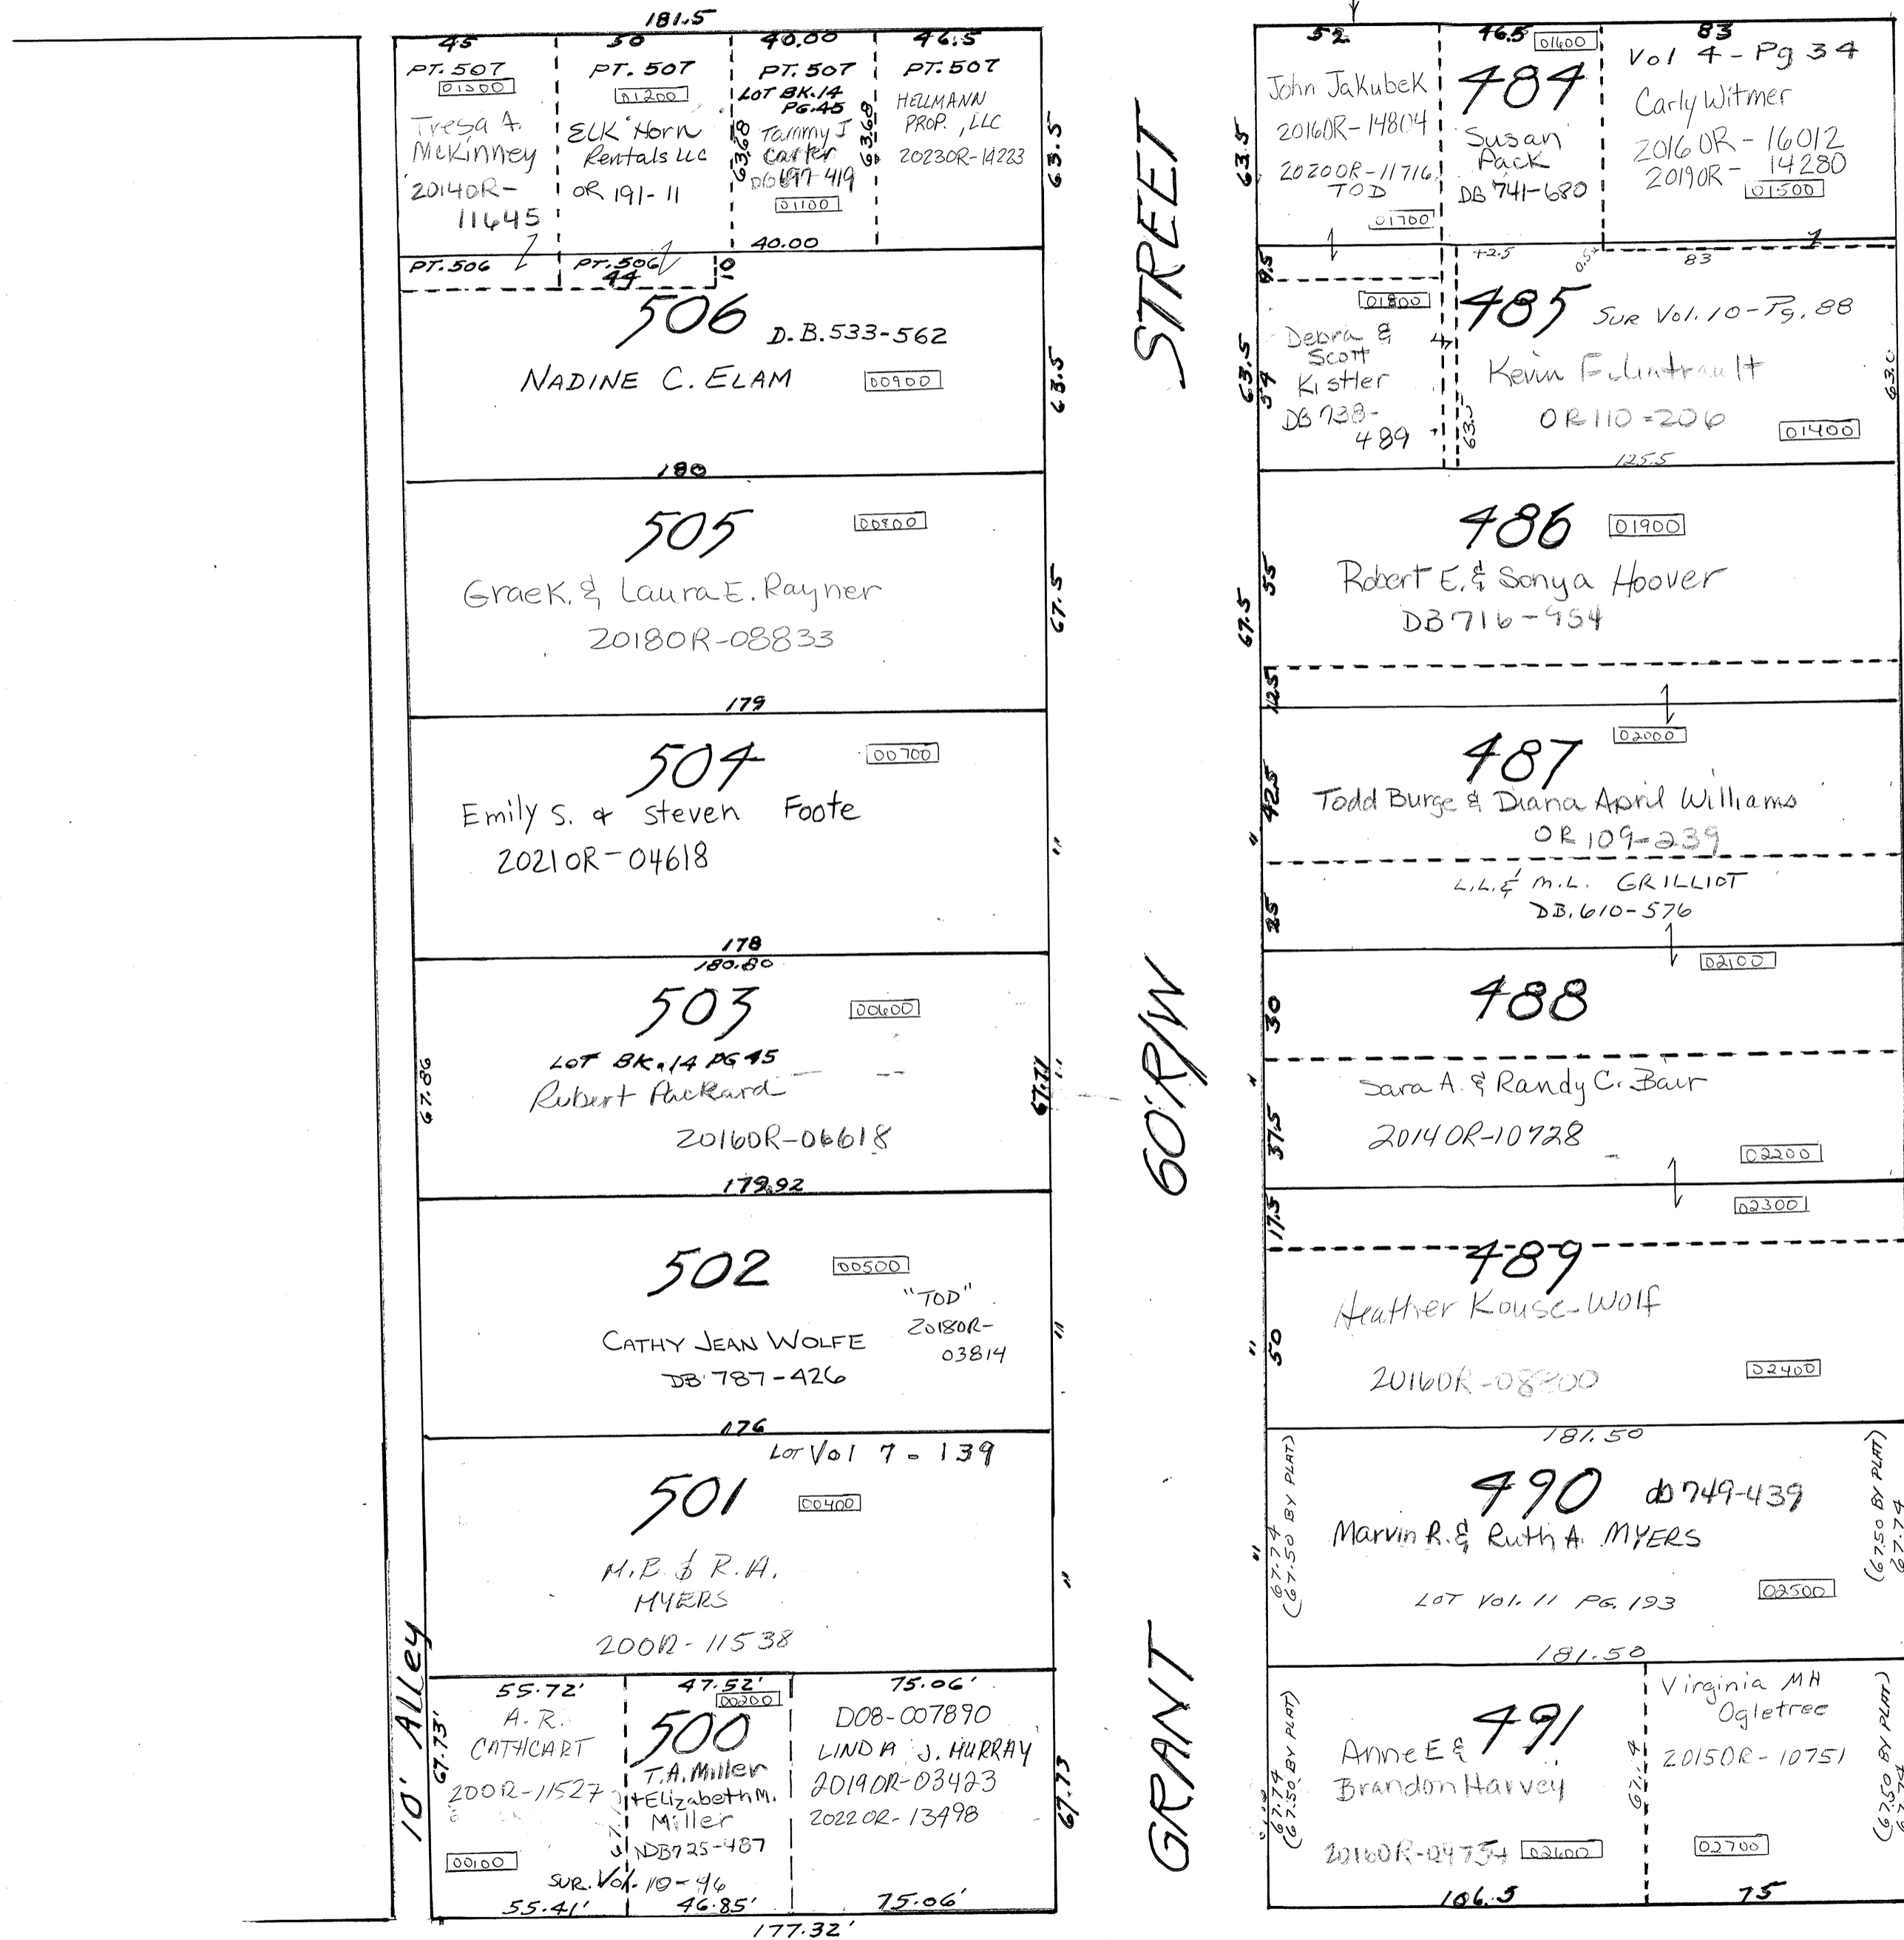 181.5
45
PT. 507
01300
Tresa A.
McKinney
2014OR-
11645
50
PT. 507
01200
ELK Horn
Rentals LLC
OR 191-11
40.00
PT. 507
LOT BK.14
PG.45
Tammy J
Carter
DB 697-419
01100
63.68
63.68
40.00
46.5
PT. 507
HELLMANN
PROP., LLC
2023OR-14223
63.5
PT. 506
PT. 506
44
10
506
D.B. 533-562
NADINE C. ELAM
00900
63.5
180
505
00800
Grae K. & Laura E. Rayner
2018OR-08833
67.5
179
504
00700
Emily S. & Steven Foote
2021OR-04618
"
178
180.80
503
00600
LOT BK. 14 PG 45
Robert Packard
2016OR-06618
67.86
67.71
179.92
502
00500
"TOD"
2018OR-
03814
CATHY JEAN WOLFE
DB 787-426
"
176
LOT Vol 7-139
501
00400
M.R. & R.A.
MYERS
200R-11538
"
10' Alley
55.72'
A.R.
CATHCART
200R-11527
00100
67.73'
55.41'
47.52'
00200
500
T.A. Miller
+ Elizabeth M.
Miller
DB 725-487
SUR. Vol. 10-46
46.85'
75.06'
D08-007890
LINDA J. MURRAY
2019OR-03423
2022OR-13498
67.73
75.06'
177.32'
GRANT 60'R/W STREET
52
John Jakubek
2016OR-14804
2020OR-11716
TOD
01700
63.5
46.5
01600
484
Susan
Pack
DB 741-680
83
Vol 4-Pg 34
Carly Witmer
2016OR-16012
2019OR-14280
01500
9.5
42.5
0.5
83
01800
Debra &
Scott
Kistler
DB 738-
489
63.5
54
4
63.5
485
SUR Vol. 10-Pg. 88
Kevin
OR 110-206
01400
63.0
125.5
486
01900
Robert E. & Sonya Hoover
DB 716-954
67.5
55
12.5
487
02000
Todd Burge & Diana April Williams
OR 109-239
42.5
"
L.L. & M.L. GRILLIOT
DB. 610-576
25
02100
488
30
Sara A. & Randy C. Bair
2014OR-10728
02200
"
37.5
02300
17.5
489
Heather Kouse-Wolf
2016OR-08800
02400
"
50
181.50
490
db 749-439
Marvin R. & Ruth A. MYERS
LOT Vol. 11 PG. 193
02500
"
67.74
(67.50 BY PLAT)
(67.50 BY PLAT)
67.74
181.50
491
Anne E &
Brandon Harvey
2016OR-04754
02600
67.74
(67.50 BY PLAT)
106.5
Virginia MH
Ogletree
2015OR-10751
02700
(67.50 BY PLAT)
67.74
75